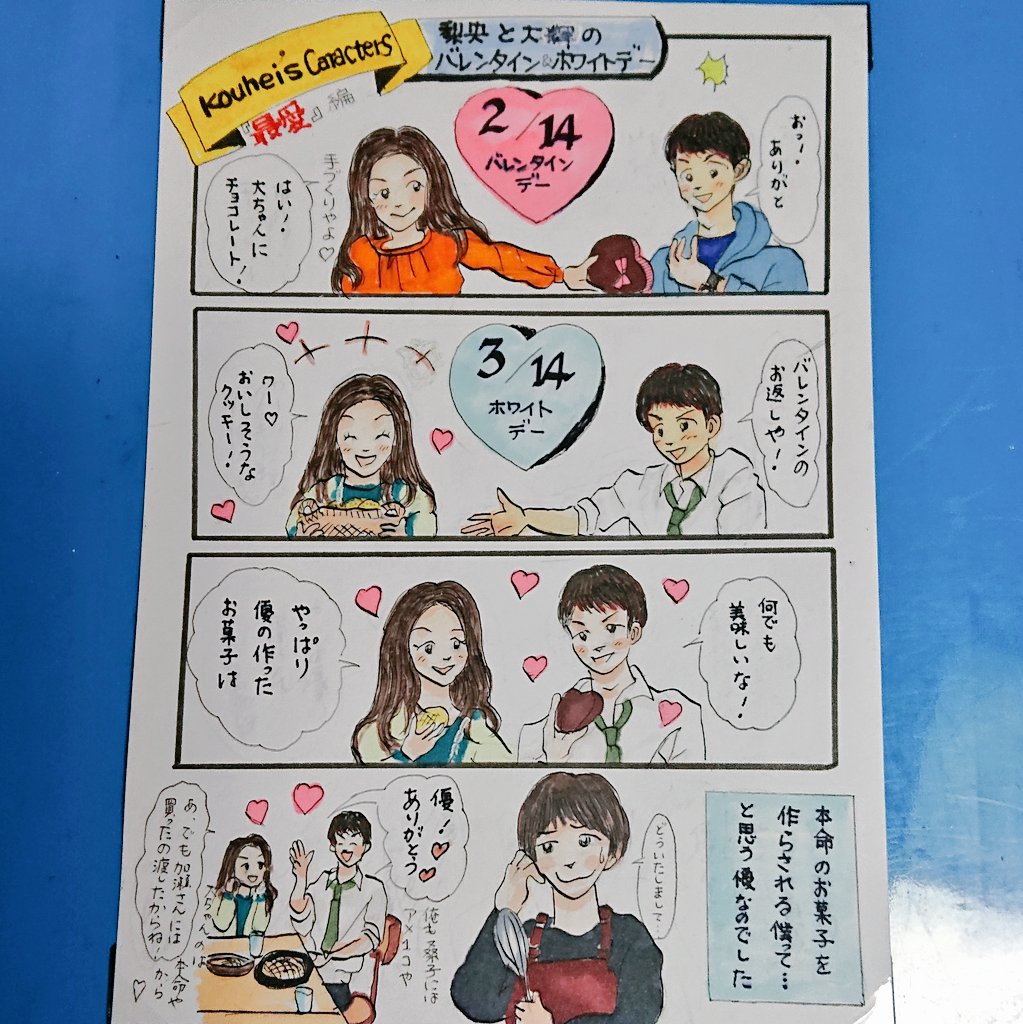 Kouhei's Caracters
『最愛』編
梨央と大輝の
バレンタイン&ホワイトデー
2/14
バレンタイン
デー
おっ!
ありがと
手づくりやよ♡
はい!
大ちゃんに
チョコレート!
3/14
ホワイト
デー
バレンタインの
お返しや!
ワー♡
おいしそうな
クッキー!
何でも
美味しいな!
やっぱり
優の作った
お菓子は
本命のお菓子を
作らされる僕って…
と思う優なのでした
どういたしまして…
優!
ありがとう
俺も桑子には
アメ1コや
あ、でも加瀬さんには
買ったの渡したからね!
大ちゃんのは
本命や
から
♡